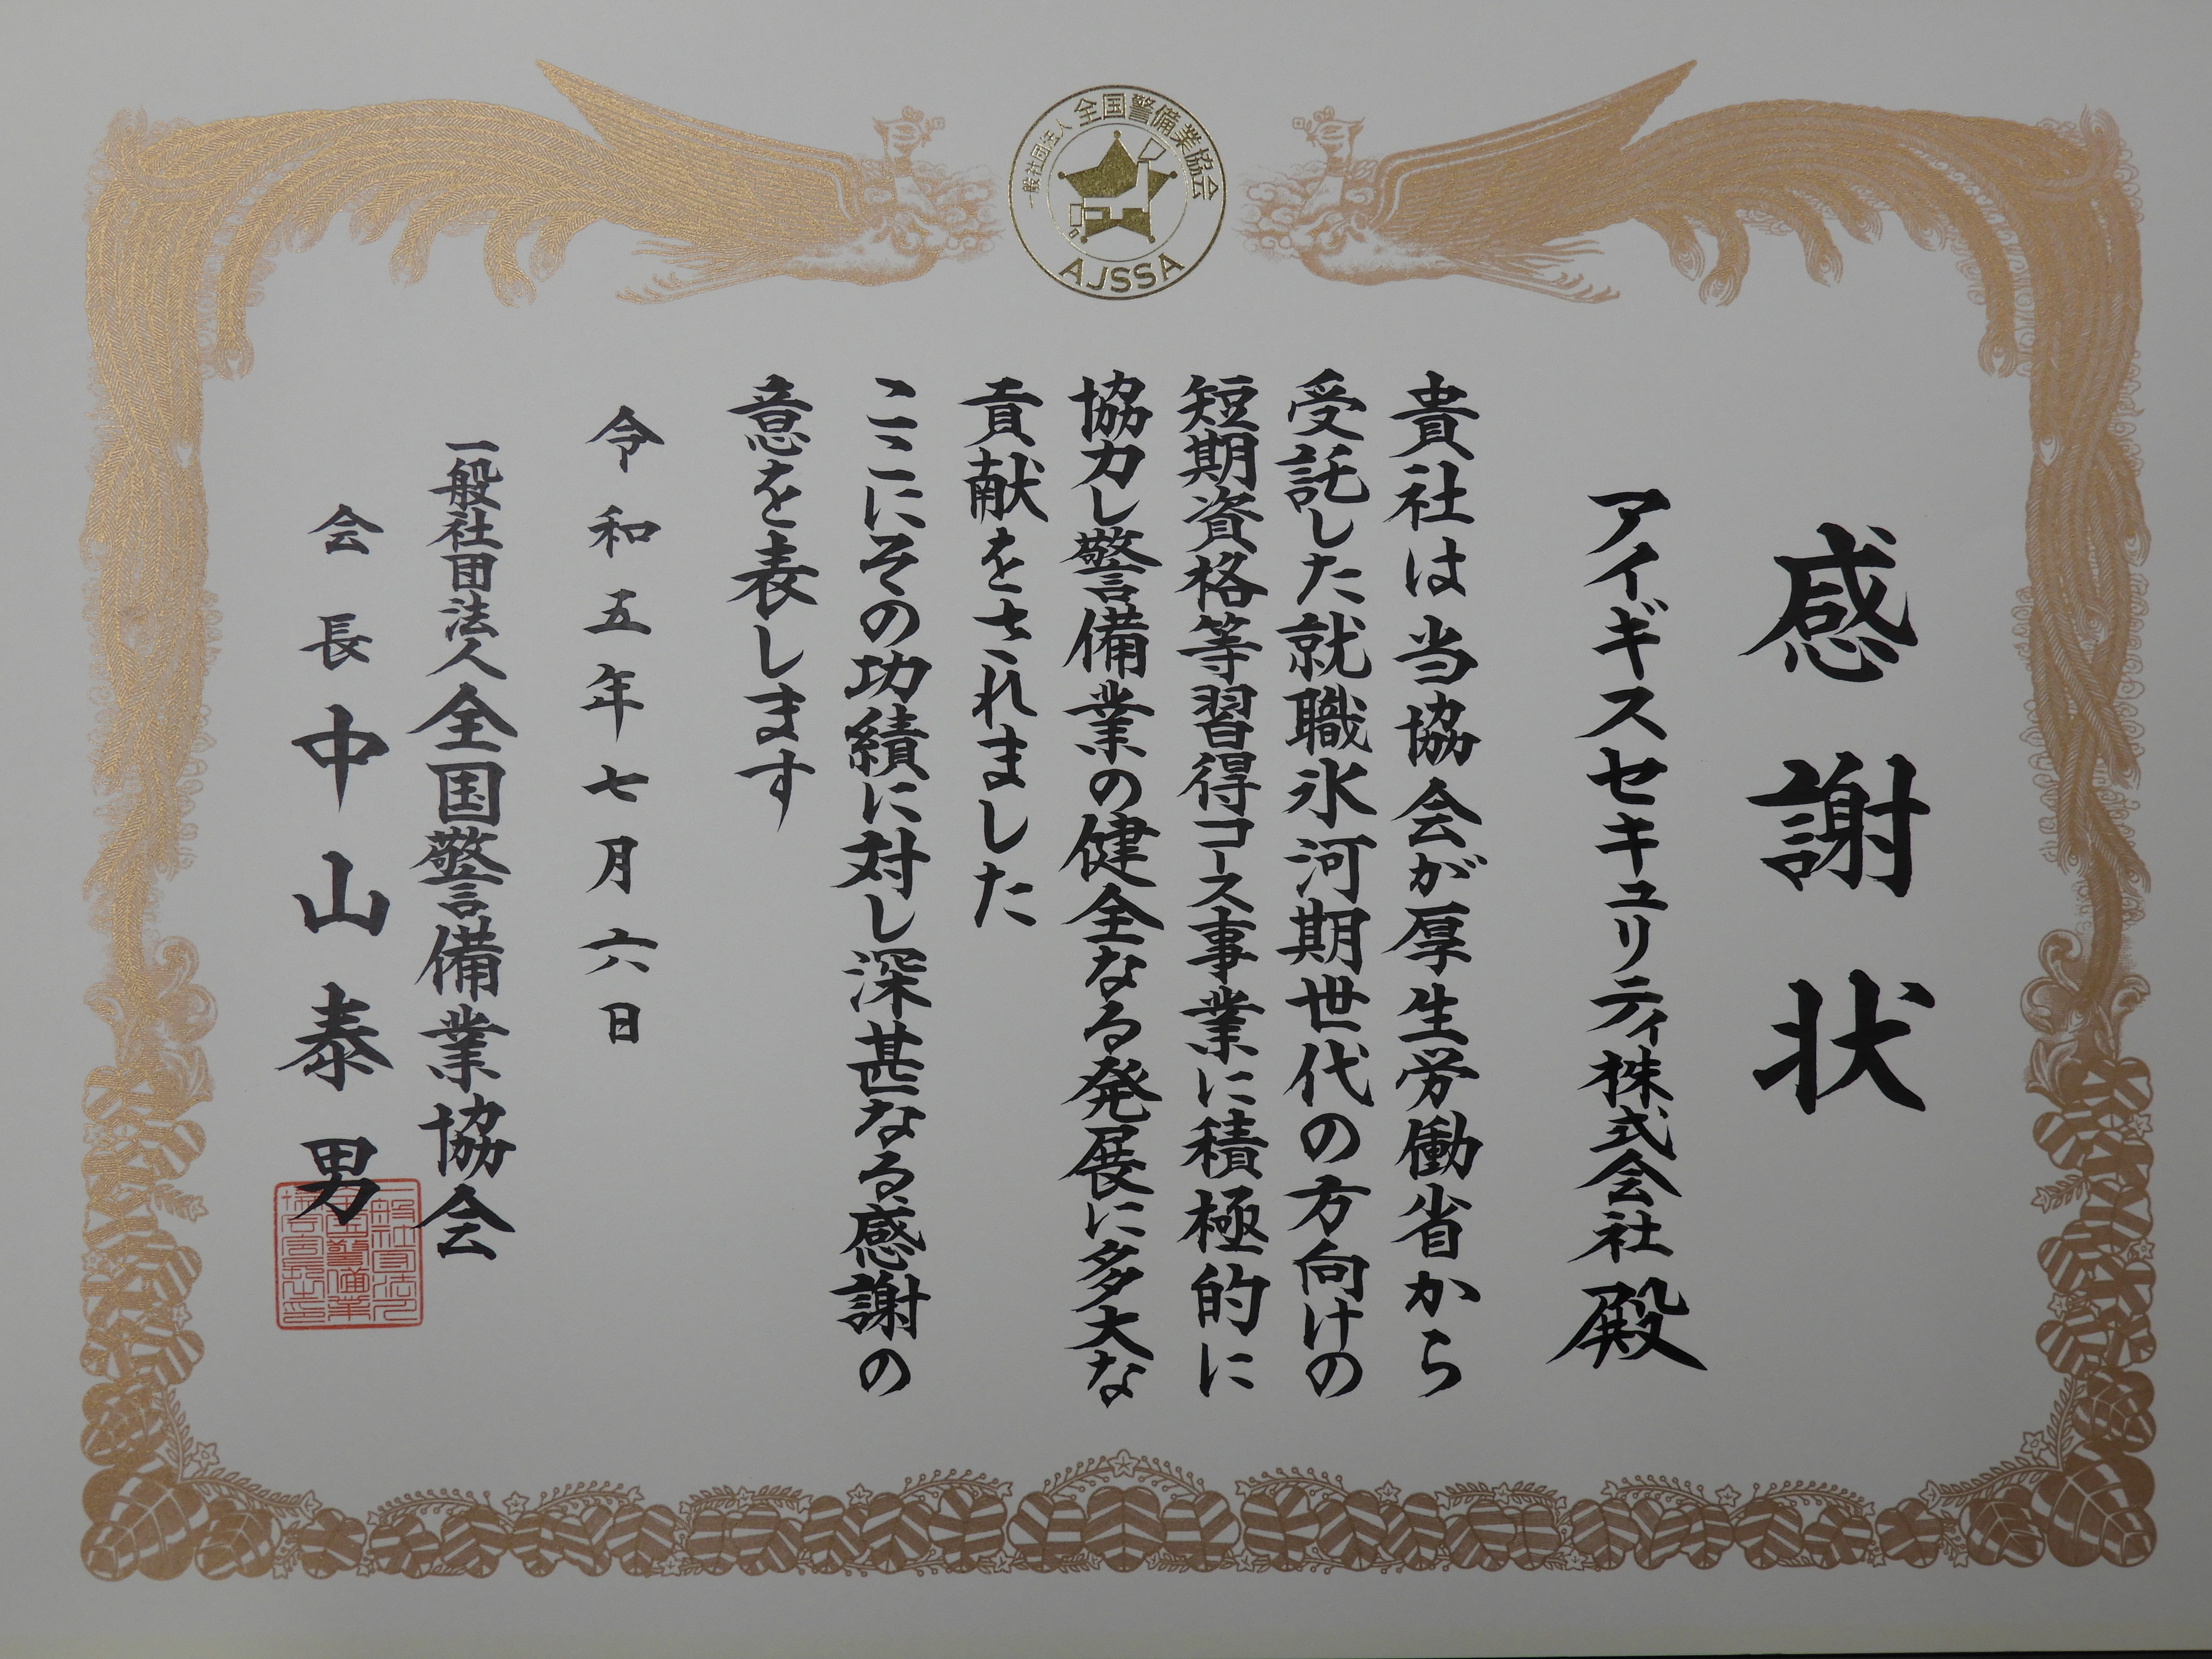 一般社団法人 全国警備業協会
AJSSA
感謝状
アイギスセキュリティ株式会社 殿
貴社は当協会が厚生労働省から
受託した就職氷河期世代の方向けの
短期資格等習得コース事業に積極的に
協力し警備業の健全なる発展に多大な
貢献をされました
ここにその功績に対し深甚なる感謝の
意を表します
令和五年七月六日
一般社団法人全国警備業協会
会長 中山泰男